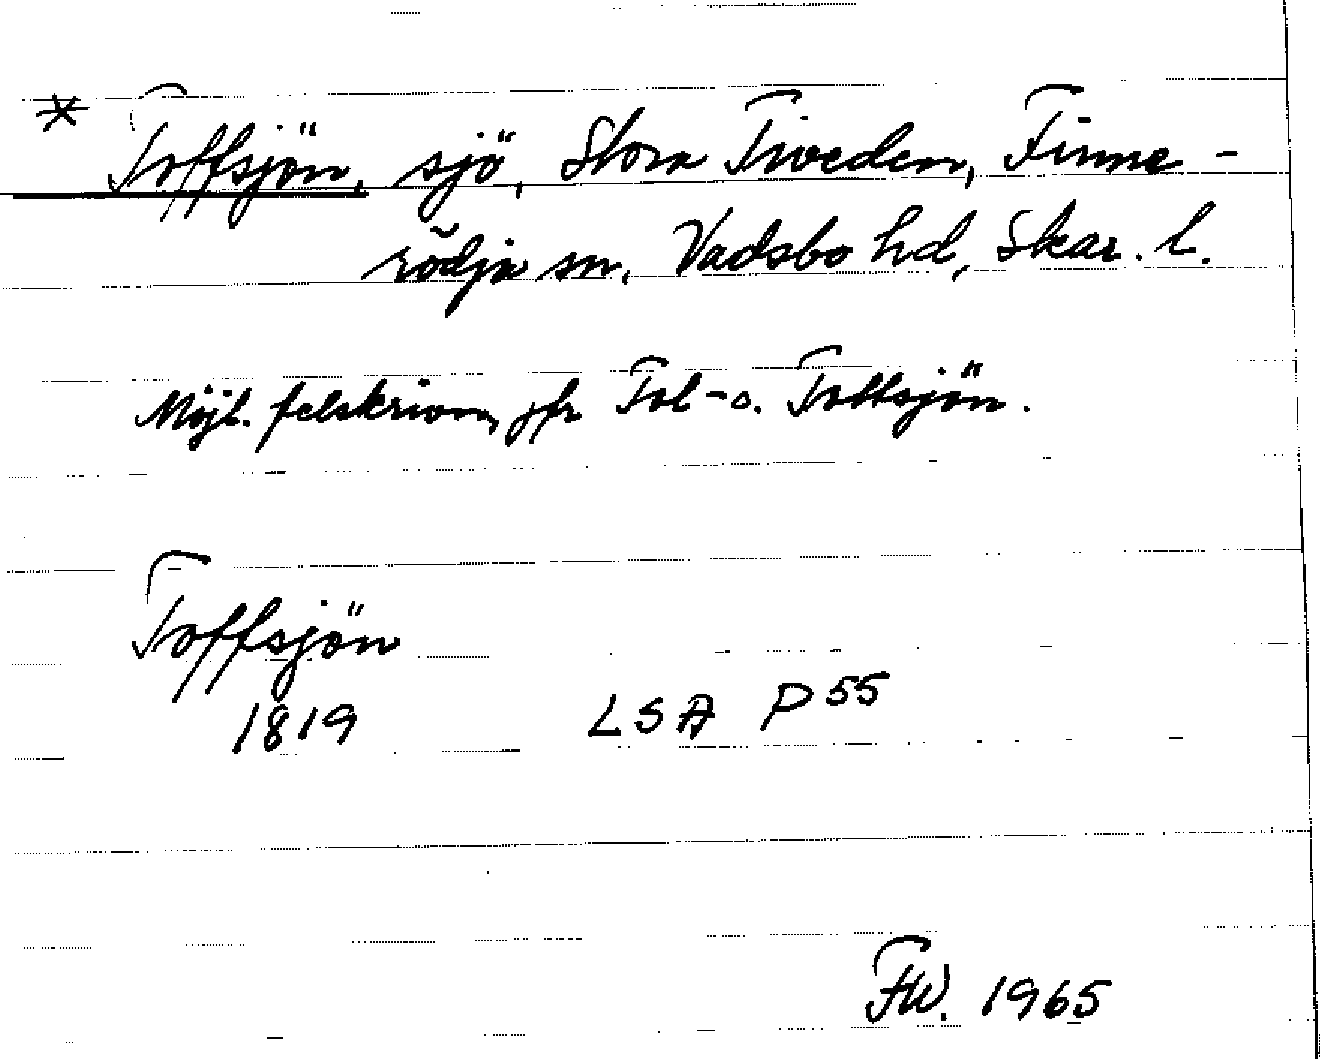 * Toffsjön, sjö, Stora Tiveden, Finne-
rödja sn, Vadsbo hd, Skar. l.
Möjl. felskrivn, jfr Tol- o. Toltsjön.
Toffsjön
1819 LSA P 55
FW. 1965